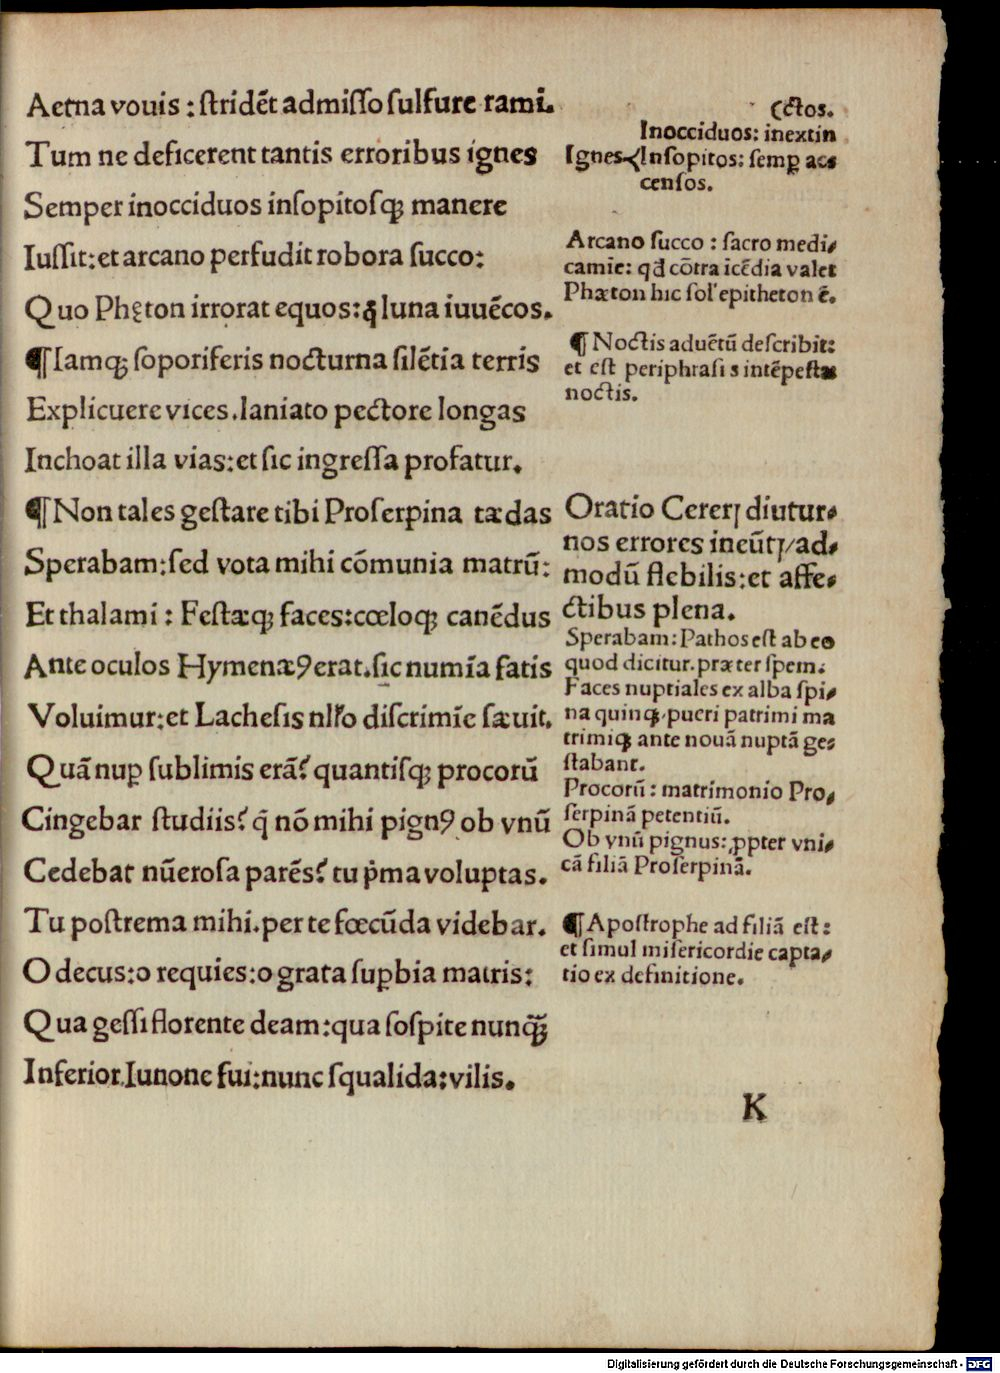 Aetna vouis : ſtridēt admiſſo ſulfure rami.
Tum ne deficerent tantis erroribus ignes
Semper inocciduos inſopitoſqꝫ manere
Iuſſit: et arcano perfudit robora ſucco:
Quo Phęton irrorat equos: ꝗ̃ luna iuuēcos.
¶ Iamqꝫ ſoporiferis nocturna ſilētia terris
Explicuere vices. laniato pectore longas
Inchoat illa vias: et ſic ingreſſa profatur.
¶ Non tales geſtare tibi Proſerpina tædas
Sperabam: ſed vota mihi cōmunia matrū:
Et thalami : Feſtæqꝫ faces: cœloqꝫ canēdus
Ante oculos Hymenæꝰ erat. ſic numīa fatis
Voluimur: et Lacheſis nĺĺo diſcrimīe ſæuit.
Quā nuꝑ ſublimis erā? quantiſqꝫ procorū
Cingebar ſtudiis? q̄ nō mihi pignꝰ ob vnū
Cedebat nūeroſa parēs? tu p̍ma voluptas.
Tu poſtrema mihi. per te fœcūda videbar.
O decus: o requies: o grata ſuꝑbia matris:
Qua geſſi florente deam: qua ſoſpite nunqꝫ̃
Inferior Iunone fui: nunc ſqualida: vilis.
(ctos.
Inocciduos: inextin
Ignes{Inſopitos: ſemꝑ ac
cenſos.
Arcano ſucco : ſacro medi-
camīe: qđ cōtra icēdia valet
Phæton hic ſol' epitheton ē.
¶ Noctis aduētū deſcribit:
et eſt periphraſis intēpeſtæ
noctis.
Oratio Cererꝭ diutur-
nos errores ineūtꝭ/ ad-
modū flebilis: et affe-
ctibus plena.
Sperabam: Pathos eſt ab eo
quod dicitur. præter ſpem.
Faces nuptiales ex alba ſpi-
na quinqꝫ. pueri patrimi ma
trimiqꝫ ante nouā nuptā ge-
ſtabant.
Procorū : matrimonio Pro-
ſerpinā petentiū.
Ob vnū pignus: ꝓpter vni-
cā filiā Proſerpinā.
¶ Apoſtrophe ad filiā eſt:
et ſimul miſericordie capta-
tio ex definitione.
K
Digitalisierung gefördert durch die Deutsche Forschungsgemeinschaft - DFG